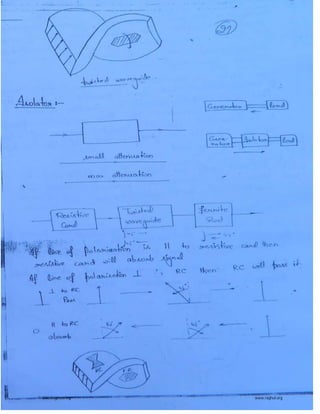 91
twisted waveguide.
Isolator :-
Generator
Load
Gene-
rator
Isolator
Load
small attenuation
max attenuation
Resistive
Card
Twisted
waveguide
ferrite
Rod
If line of polarization is || to resistive card then
resistive card will absorb signal
If line of polarization ⊥ RC then RC will pass it.
⊥ to RC
Pass
45°
|| to RC
absorb
45°
45°